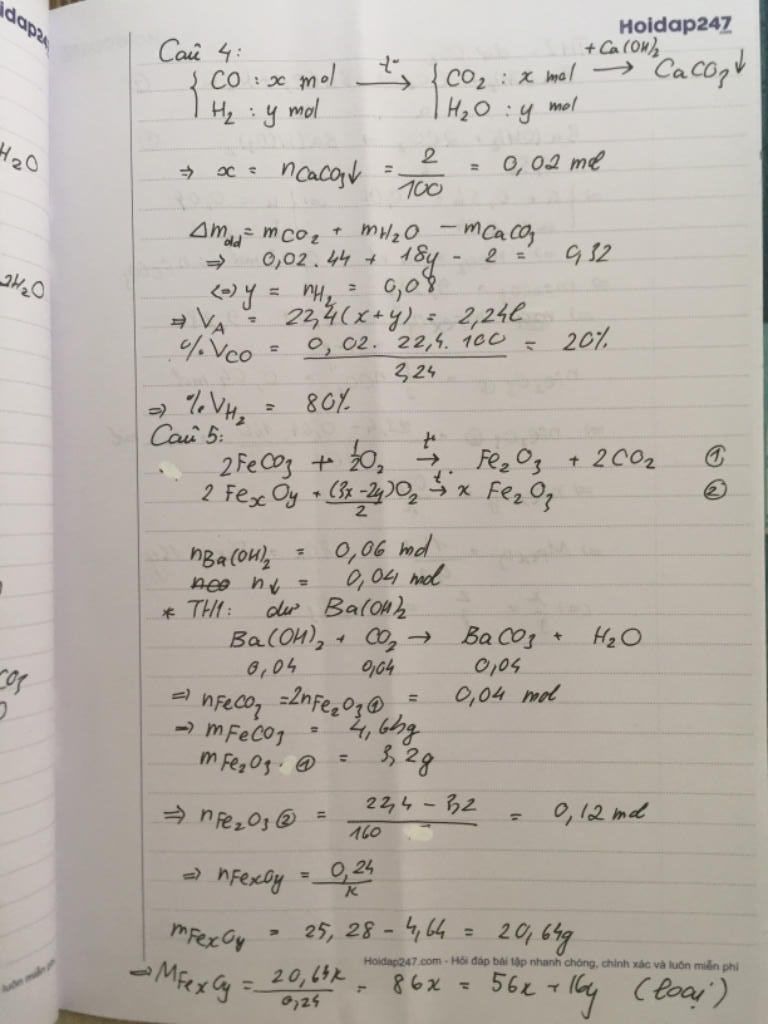 Hoidap247
Câu 4:
{ CO : x mol  →(t°)  { CO2 : x mol  →(+Ca(OH)2)  CaCO3↓
{ H2 : y mol  { H2O : y mol
⇒ x = nCaCO3↓ = 2/100 = 0,02 mol
Δmdd = mCO2 + mH2O - mCaCO3
⇒ 0,02.44 + 18y - 2 = 0,32
<=> y = nH2 = 0,08
⇒ VA = 22,4(x+y) = 2,24l
%VCO = 0,02. 22,4. 100 / 2,24 = 20%
⇒ %VH2 = 80%
Câu 5:
2FeCO3 + 1/2O2 →(t°) Fe2O3 + 2CO2 ①
2FexOy + (3x-2y)/2 O2 →(t°) x Fe2O3 ②
nBa(OH)2 = 0,06 mol
n↓ = 0,04 mol
* TH1: dư Ba(OH)2
Ba(OH)2 + CO2 → BaCO3 + H2O
0,04 0,04 0,04
⇒ nFeCO3 = 2nFe2O3 ① = 0,04 mol
⇒ mFeCO3 = 4,64g
mFe2O3 ① = 3,2g
⇒ nFe2O3 ② = (22,4 - 3,2)/160 = 0,12 mol
⇒ nFexOy = 0,24/x
mFexOy = 25,28 - 4,64 = 20,64g
Hoidap247.com - Hỏi đáp bài tập nhanh chóng, chính xác và luôn miễn phí
⇒ MFexOy = 20,64x/0,24 = 86x = 56x + 16y (loại)